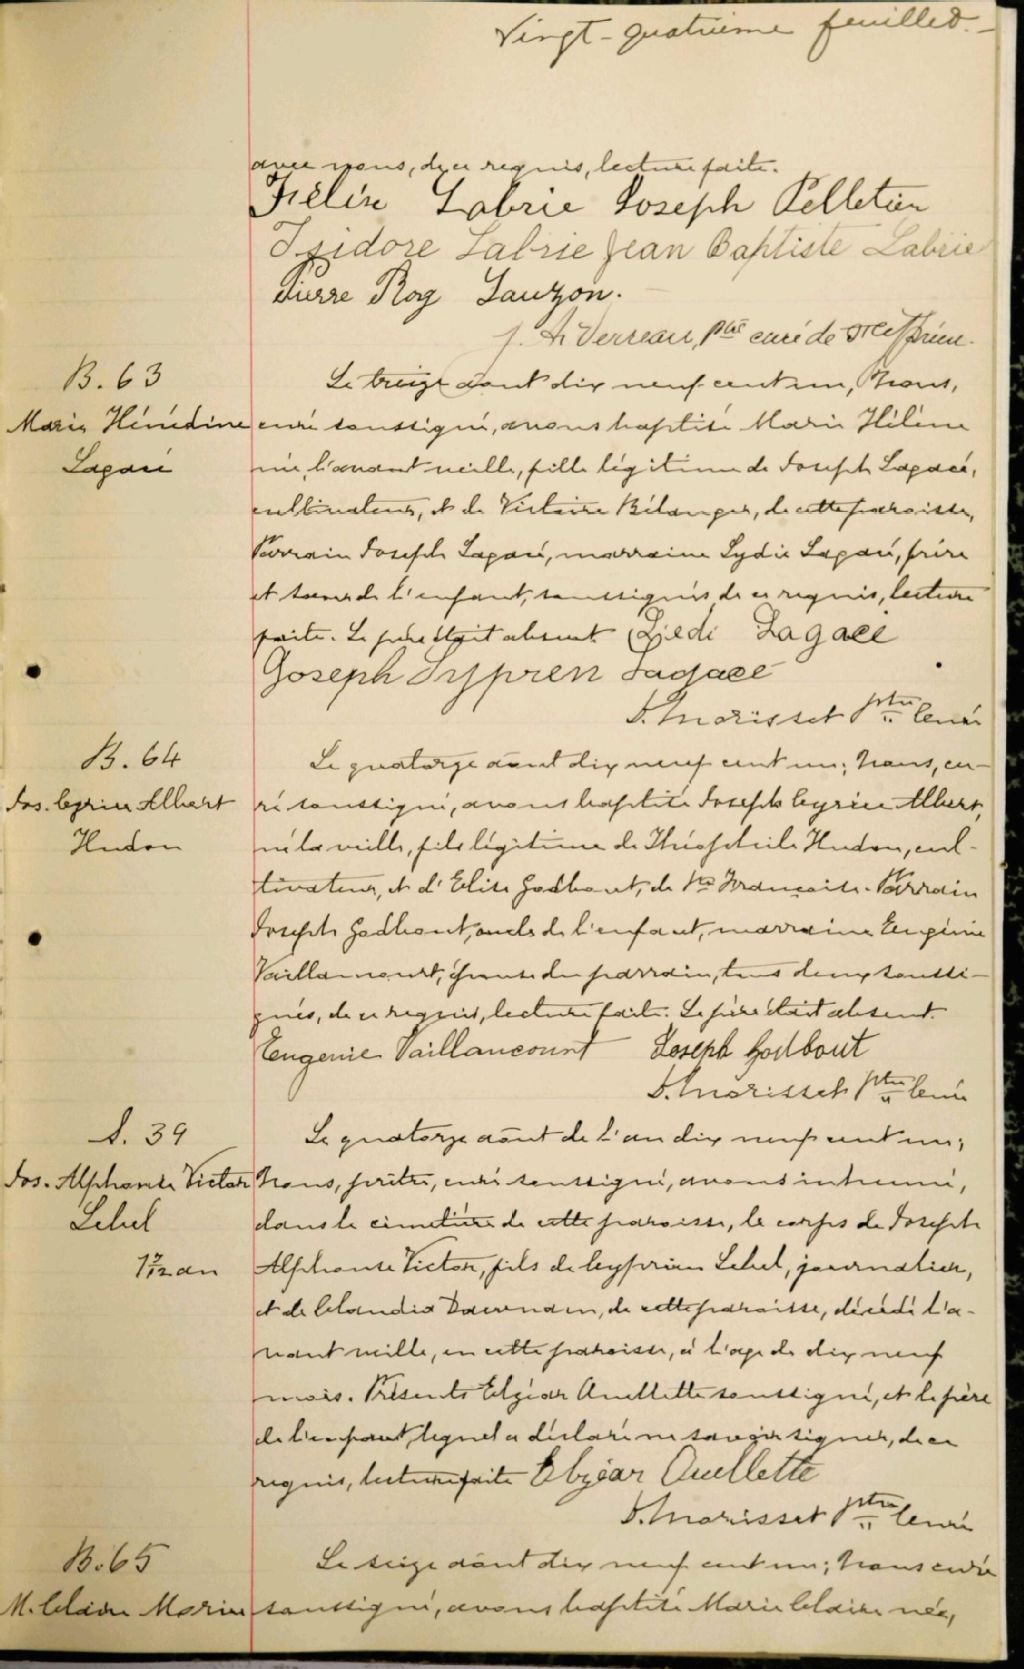 Vingt-quatrième feuillet.
avec nous, de ce requis, lecture faite.
Félix Labrie Joseph Pelletier
Isidore Labrie Jean Baptiste Labrie
Pierre Roy Lauzon.
J. A. Verreau, ptre curé de
B. 63
Le treize août dix neuf cent un, Nous,
Marie Hénédine
curé soussigné, avons baptisé Marie Hélène
Lagacé
née l'avant veille, fille légitime de Joseph Lagacé,
cultivateur, et de Victoire Bélanger, de cette paroisse,
Parrain Joseph Lagacé, marraine Lydie Lagacé, frère
et soeur de l'enfant, soussignés de ce requis, lecture
faite. Le père était absent Liedi Lagacé
Joseph Sypren Lagacé
D. Morisset Ptre Curé
B. 64
Le quatorze août dix neuf cent un; Nous, cu-
Jos. Cyrice Albert
ré soussigné, avons baptisé Joseph Cyrice Albert,
Hudon
né la veille, fils légitime de Théophile Hudon, cul-
tivateur, et d'Elise Godbout, de St François. Parrain
Joseph Godbout, oncle de l'enfant, marraine Eugénie
Vaillancourt, épouse du parrain, tous deux soussi-
gnés, de ce requis, lecture faite. Le père était absent.
Eugenie Vaillancourt Joseph Godbout
D. Morisset Ptre Curé
S. 39
Le quatorze août de l'an dix neuf cent un;
Jos. Alphonse Victor
Nous, prêtre, curé soussigné, avons inhumé,
Lebel
dans le cimetière de cette paroisse, le corps de Joseph
1 7/12 an
Alphonse Victor, fils de Cyprien Lebel, journalier,
et de Claudia, de cette paroisse, décédé l'a-
vant veille, en cette paroisse, à l'age de dix neuf
mois. Présents Elzéar Ouellette soussigné, et le père
de l'enfant, lequel a déclaré ne savoir signer, de ce
requis, lecture faite Elzéar Ouellette
D. Morisset Ptre Curé
B. 65
Le seize août dix neuf cent un; Nous curé
M. Claire Morin
soussigné, avons baptisé Marie Claire née,